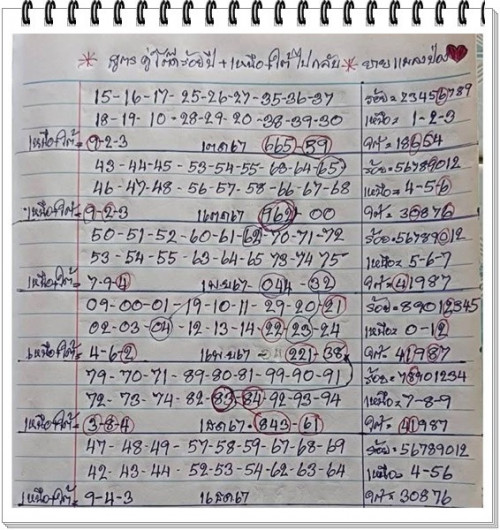 * สูตร คู่โต๊ดร้อยปี + เหนือ+ใต้ ไปกลับ *
15-16-17-25-26-27-35-36-37 ร้อย=23456789
18-19-10-28-29-20-38-39-30 เหนือ=1-2-3
เหนือ+ใต้=9-2-3 665-59 ใต้=18654
43-44-45-53-54-55-63-64-65 ร้อย=56789012
46-47-48-56-57-58-66-67-68 เหนือ=4-5-6
เหนือ+ใต้=9-2-3 962-00 ใต้=30876
50-51-52-60-61-62-70-71-72 ร้อย=56789012
53-54-55-63-64-65 73-74 75 เหนือ=5-6-7
เหนือ+ใต้=7-9-4 1 เมษ67 - 044-32 ใต้=41987
09-00-01-19-10-11-29-20-21 ร้อย=89012345
02-03-04-12-13-14-22-23-24 เหนือ=0-12
เหนือ+ใต้=4-6-2 16 เมษ67 - 221-38 ใต้=41987
79-70-71-89-80-81-99-90-91 ร้อย=78901234
72-73-74-82-83-84-92-93-94 เหนือ=7-8-9
เหนือ+ใต้=3-8-4 843-61 ใต้=41987
47-48-49-57-58-59-67-68-69 ร้อย=56789012
42-43-44-52-53-54-62-63-64 เหนือ=4-56
เหนือ+ใต้=9-4-3 ใต้=30876